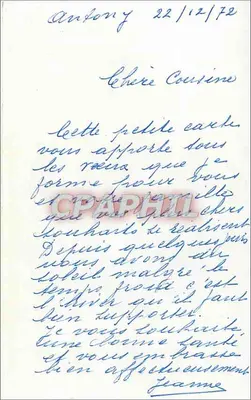 Antony 22/12/72
Chère Cousine
Cette petite carte
vous apporte tous
les vœux que je
forme pour vous
et votre famille
que vos plus chers
souhaits se réalisent
Depuis quelques jours
nous avons du
soleil malgré le
temps froid c'est
l'hiver qu'il faut
bien supporter.
Je vous souhaite
une bonne santé
et vous embrasse
bien affectueusement
Jeanne
CPAPHIL